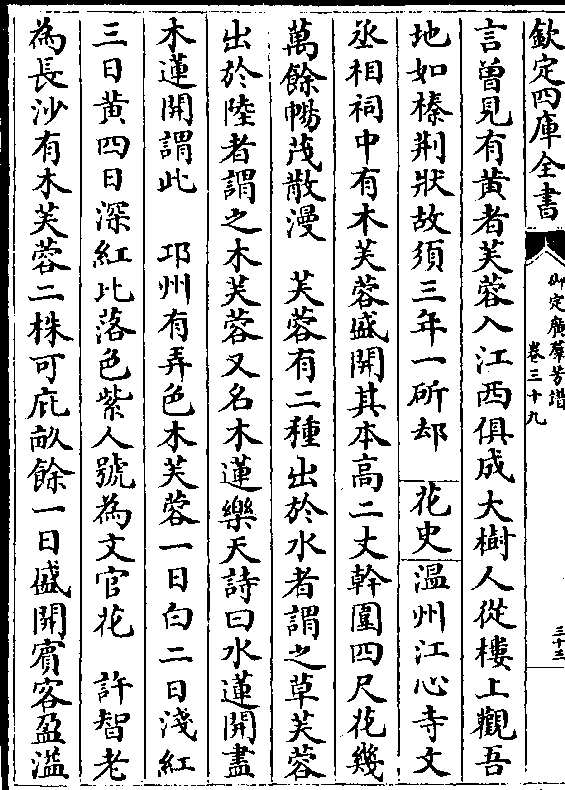 欽定四庫全書
御定廣羣芳譜
卷三十九
三十三
言曾見有黄者芙蓉入江西俱成大樹人從樓上觀吾
地如榛荆狀故須三年一斫却　花史　温州江心寺文
丞相祠中有木芙蓉盛開其本高二丈幹圍四尺花幾
萬餘暢茂散漫　芙蓉有二種出於水者謂之草芙蓉
出於陸者謂之木芙蓉又名木蓮樂天詩曰水蓮開盡
木蓮開謂此　邛州有弄色木芙蓉一日白二日淺紅
三日黄四日深紅比落色紫人號為文官花　許智老
為長沙有木芙蓉二株可庇畝餘一日盛開賓客盈溢